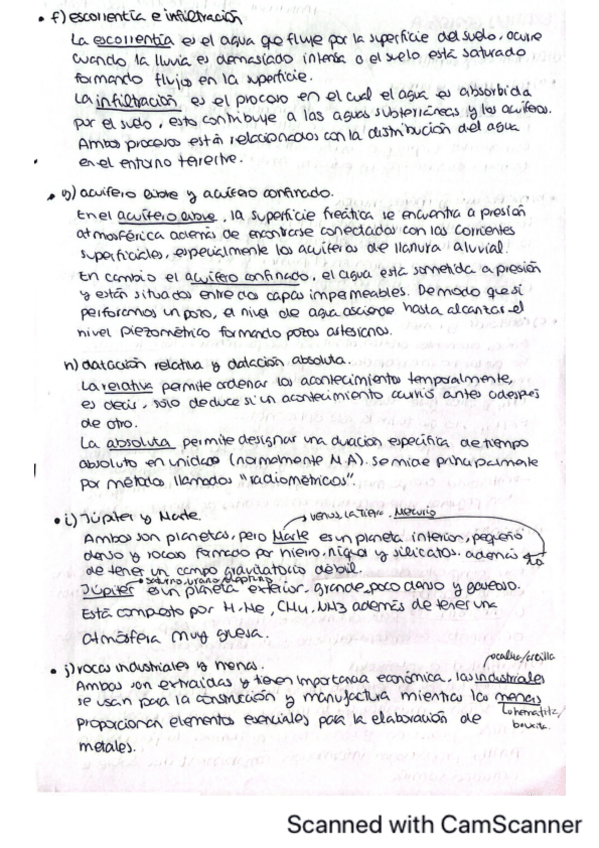 • f) escorrentía e infiltración
La escorrentía es el agua que fluye por la superficie del suelo, ocurre
cuando la lluvia es demasiado intensa o el suelo está saturado
formando flujos en la superficie.
La infiltración es el proceso en el cual el agua es absorbida
por el suelo, esto contribuye a las aguas subterráneas y los acuíferos.
Ambos procesos están relacionados con la distribución del agua
en el entorno terrestre.
• g) acuífero libre y acuífero confinado.
En el acuífero libre, la superficie freática se encuentra a presión
atmosférica además de encontrarse conectados con las corrientes
superficiales, especialmente los acuíferos de llanura aluvial.
En cambio el acuífero confinado, el agua está sometida a presión
y están situados entre dos capas impermeables. De modo que si
perforamos un pozo, el nivel de agua asciende hasta alcanzar el
nivel piezométrico formando pozos artesianos.
h) datación relativa y datación absoluta.
La relativa permite ordenar los acontecimientos temporalmente,
es decir, sólo deduce si un acontecimiento ocurrió antes o despes
de otro.
La absoluta permite designar una duación específica de tiempo
absoluto en unidades (normalmente M.A). Se mide principalmente
por métodos llamados "radiométricos".
• i) Júpiter y Marte.
→ venus, la tierra, Mercurio
Ambos son planetas, pero Marte es un planeta interior, pequeño
denso y rocoso formado por hierro, níquel y silicatos. además
de tener un campo gravitatorio débil.
saturno, urano,
Júpiter es un planeta exterior, grande, poco denso y gaseoso.
Está compuesto por H, He, CH4, NH3 además de tener una
atmósfera muy gruesa.
• j) rocas industriales y menas.
Ambas son extraídas y tienen importancia económica, las industriales
se usan para la construcción y manufactura mientras las menas
proporcionan elementos esenciales para la elaboración de
metales.
Scanned with CamScanner